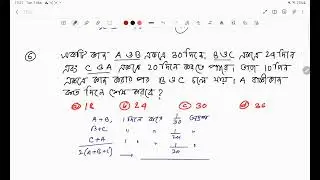 ৫ একটি কাজ A ও B একত্রে 30 দিনে, B ও C একত্রে 24 দিনে
এবং C ও A একত্রে 20 দিনে করতে পারে। তারা 10 দিন
একত্রে কাজ করার পর B ও C চলে যায়। A বাকী কাজ
কত দিনে শেষ করবে?
18 b 24 c 30 d 36
A+B, 1 দিনে করে 1/30 অংশ
B+C " " " 1/24 "
C+A " " " 1/20 "
2(A+B+C) →